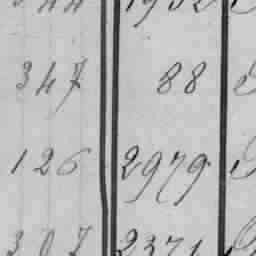 347 88
126 2979
307 2371